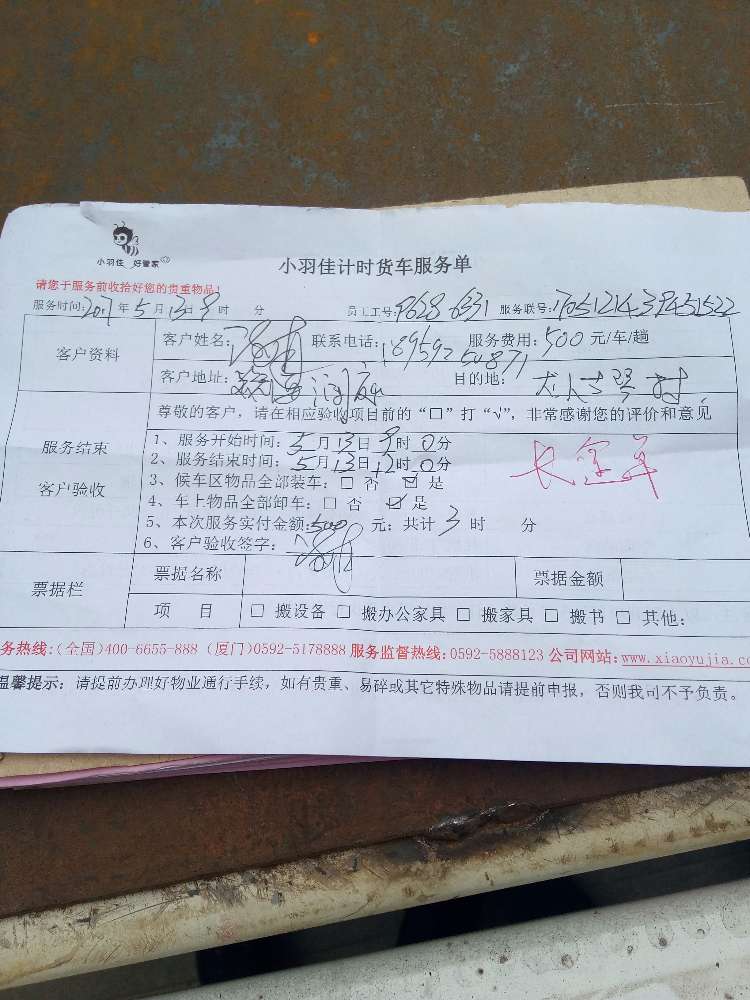 小羽佳 好管家
小羽佳计时货车服务单
请您于服务前收拾好您的贵重物品!
服务时间:2017年5月13日9时 分 员工工号: 服务联号:
客户资料
客户姓名: 联系电话: 服务费用:500元/车/趟
客户地址: 目的地:
尊敬的客户，请在相应验收项目前的“☐”打“√”,非常感谢您的评价和意见
服务结束
客户验收
1、服务开始时间:5月13日9时0分
2、服务结束时间:5月13日12时0分
3、候车区物品全部装车:☐ 否 ☑ 是
4、车上物品全部卸车:☐ 否 ☑ 是
5、本次服务实付金额:500元:共计3时 分
6、客户验收签字:
票据栏
票据名称 票据金额
项 目 ☐ 搬设备 ☐ 搬办公家具 ☐ 搬家具 ☐ 搬书 ☐ 其他:
务热线:(全国)400-6655-888 (厦门)0592-5178888 服务监督热线:0592-5888123 公司网站:www.xiaoyujia.co
温馨提示:请提前办理好物业通行手续，如有贵重、易碎或其它特殊物品请提前申报，否则我司不予负责。